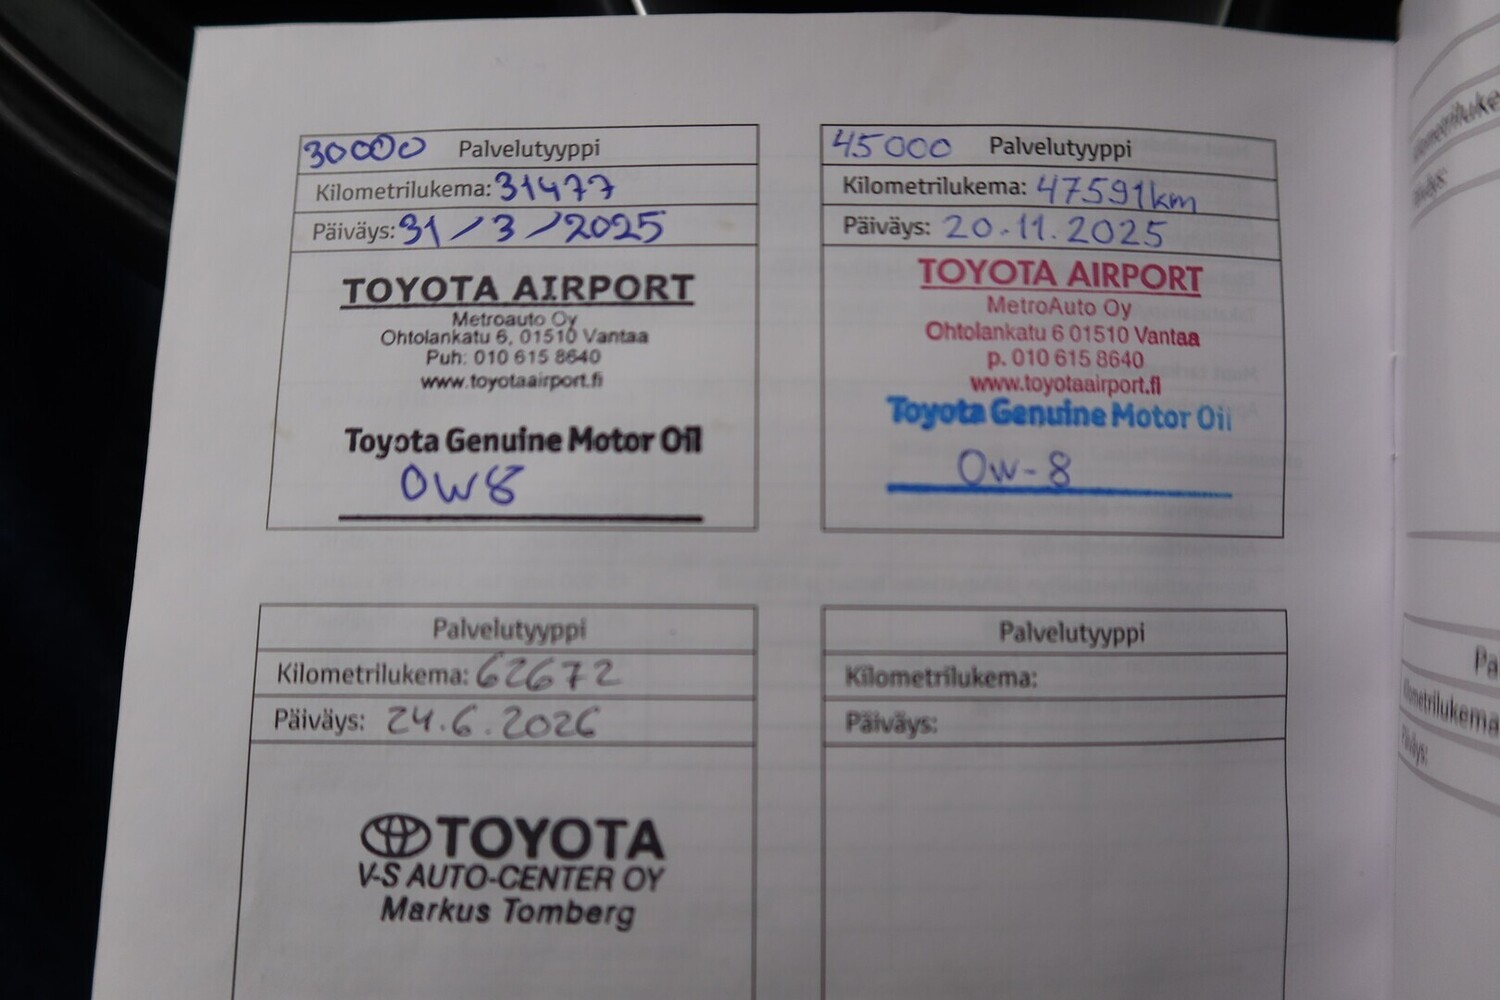 30000 Palvelutyyppi
Kilometrilukema: 31477
Päiväys: 31/3/2025
TOYOTA AIRPORT
Metroauto Oy
Ohtolankatu 6, 01510 Vantaa
Puh: 010 615 8640
www.toyotaairport.fi
Toyota Genuine Motor Oil
0W8
45000 Palvelutyyppi
Kilometrilukema: 47591km
Päiväys: 20.11.2025
TOYOTA AIRPORT
MetroAuto Oy
Ohtolankatu 6 01510 Vantaa
p. 010 615 8640
www.toyotaairport.fi
Toyota Genuine Motor Oil
0w-8
Palvelutyyppi
Kilometrilukema: 62672
Päiväys: 24.6.2026
TOYOTA
V-S AUTO-CENTER OY
Markus Tomberg
Palvelutyyppi
Kilometrilukema:
Päiväys: